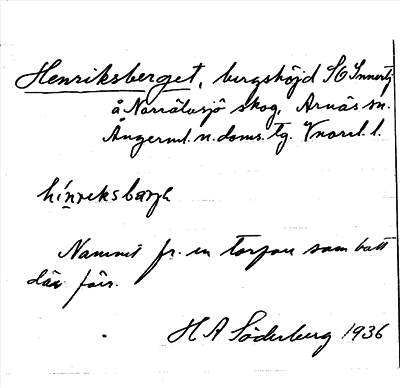 Henriksberget, bergshöjd SO Innertj.
å Norrätasjö skog, Arnäs sn.
Ångerml. n. doms. tg. Vnorrl. l.
hínreksbærjə
Namnet fr. en torpare som bott
där förr.
H A Söderberg 1936